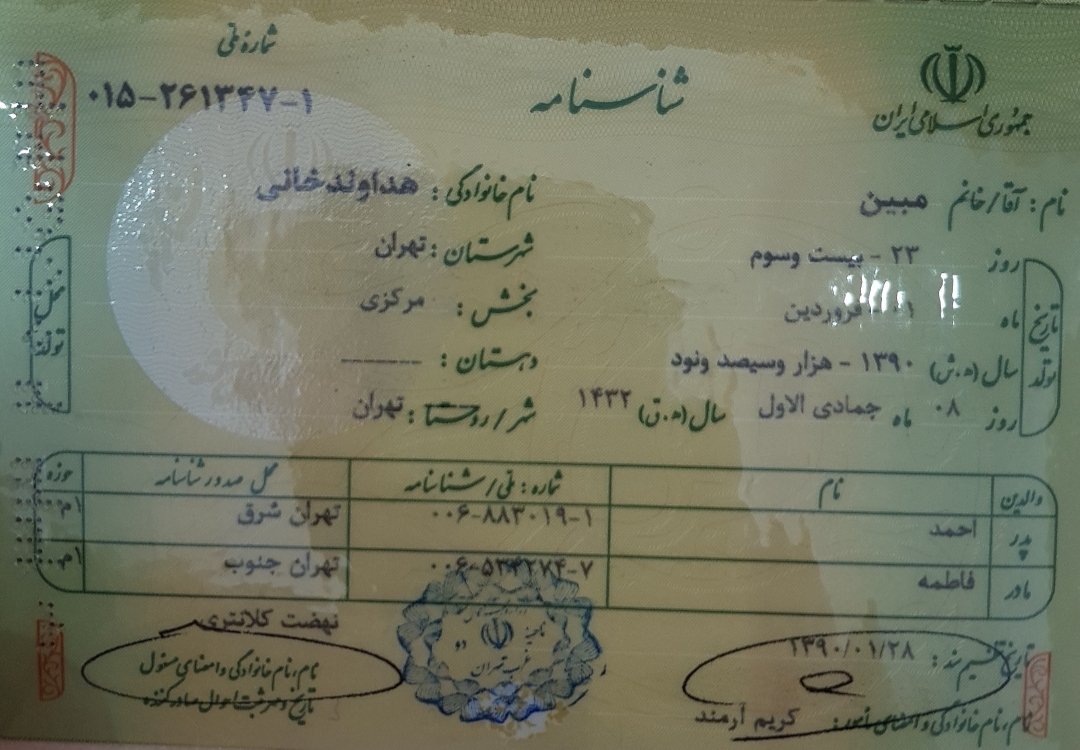 جمهوری اسلامی ایران
شناسنامه
شماره ملی
۰۱۵-۲۶۱۳۴۷-۱
نام: آقا/خانم مبین
نام خانوادگی: هداوندخانی
تاریخ تولد
روز ۲۳ - بیست وسوم
ماه ۰۱ - فروردین
سال (ه.ش) ۱۳۹۰ - هزار وسیصد ونود
روز ۰۸ ماه جمادی الاول سال (ه.ق) ۱۴۳۲
محل تولد
شهرستان: تهران
بخش: مرکزی
دهستان: --------
شهر/روستا: تهران
والدین نام شماره: ملی/شناسنامه محل صدور شناسنامه حوزه
پدر احمد ۰۰۶-۸۸۳۰۱۹-۱ تهران شرق ۱م
مادر فاطمه ۰۰۶-۵۳۴۲۷۴-۷ تهران جنوب ۱م
تاریخ تنظیم سند: ۱۳۹۰/۰۱/۲۸
نام، نام خانوادگی و امضای مامور: کریم آرمند
نهضت کلانتری
نام، نام خانوادگی و امضای مسئول
تهران